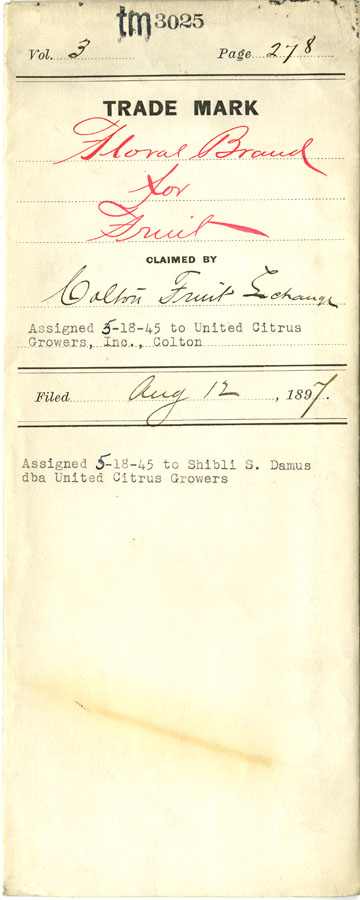 tm 3025
Vol. 3 Page 278
TRADE MARK
Floral Brand
for
Fruit
CLAIMED BY
Colton Fruit Exchange
Assigned 5-18-45 to United Citrus
Growers, Inc., Colton
Filed Aug 12, 1897.
Assigned 5-18-45 to Shibli S. Damus
dba United Citrus Growers